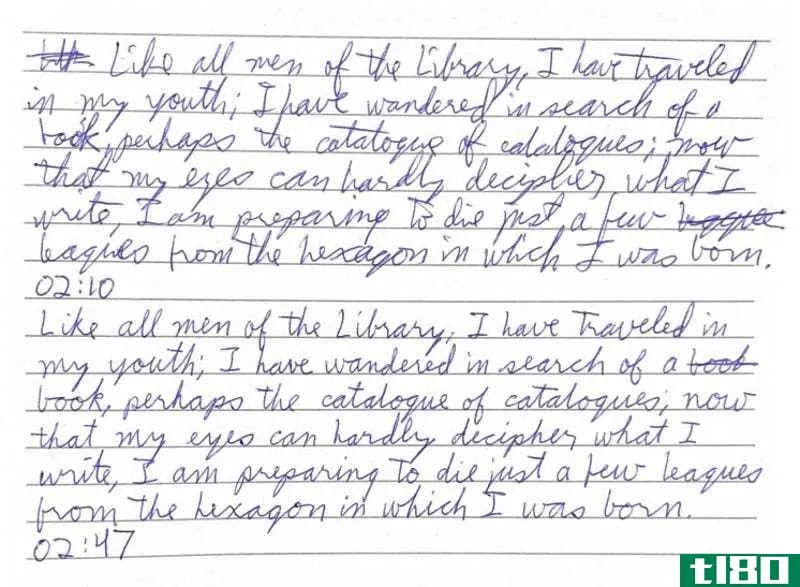 Like all men of the Library, I have traveled
in my youth; I have wandered in search of a
book, perhaps the catalogue of catalogues; now
that my eyes can hardly decipher what I
write, I am preparing to die just a few
leagues from the hexagon in which I was born.
02:10
Like all men of the Library, I have traveled in
my youth; I have wandered in search of a book
book, perhaps the catalogue of catalogues; now
that my eyes can hardly decipher what I
write, I am preparing to die just a few leagues
from the hexagon in which I was born.
02:47
tl80